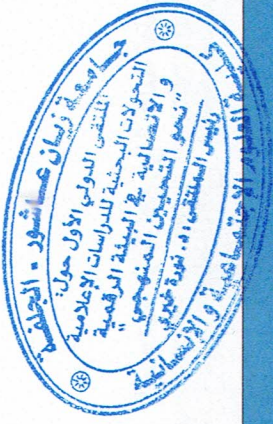 جامعة زيان عاشور - الجلفة
الملتقى الدولي الأول حول:
التحولات البحثية للدراسات الإعلامية
والاتصالية في البيئة الرقمية
"نحو التحيين المنهجي"
رئيس الملتقى: د. نورة خيري
كلية العلوم الاجتماعية والإنسانية